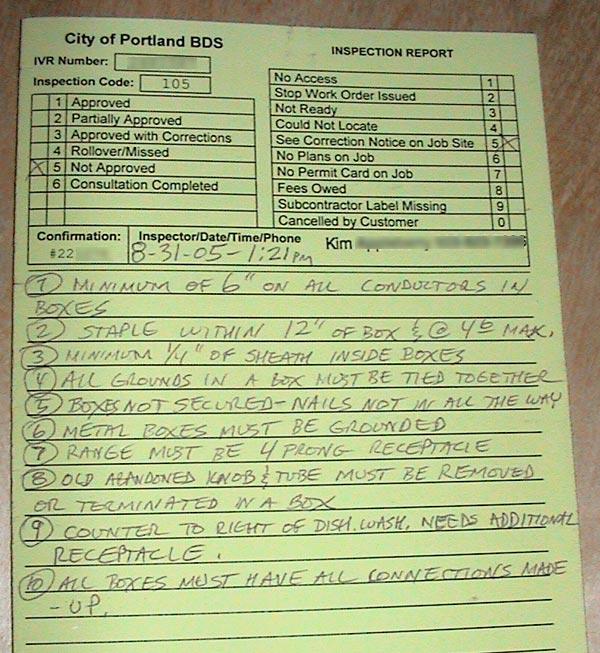 City of Portland BDS
IVR Number:
Inspection Code: 105
1 Approved
2 Partially Approved
3 Approved with Corrections
4 Rollover/Missed
X 5 Not Approved
6 Consultation Completed
INSPECTION REPORT
No Access 1
Stop Work Order Issued 2
Not Ready 3
Could Not Locate 4
See Correction Notice on Job Site 5 X
No Plans on Job 6
No Permit Card on Job 7
Fees Owed 8
Subcontractor Label Missing 9
Cancelled by Customer 0
Confirmation:
#22
Inspector/Date/Time/Phone
Kim
8-31-05-1:21pm
1 MINIMUM OF 6" ON ALL CONDUCTORS IN
BOXES
2 STAPLE WITHIN 12" OF BOX & @ 4 ½ MAX.
3 MINIMUM 1/4" OF SHEATH INSIDE BOXES
4 ALL GROUNDS IN A BOX MUST BE TIED TOGETHER
5 BOXES NOT SECURED-NAILS NOT IN ALL THE WAY
6 METAL BOXES MUST BE GROUNDED
7 RANGE MUST BE 4 PRONG RECEPTACLE
8 OLD ABANDONED KNOB & TUBE MUST BE REMOVED
OR TERMINATED IN A BOX
9 COUNTER TO RIGHT OF DISH.WASH. NEEDS ADDITIONAL
RECEPTACLE.
10 ALL BOXES MUST HAVE ALL CONNECTIONS MADE
-UP.